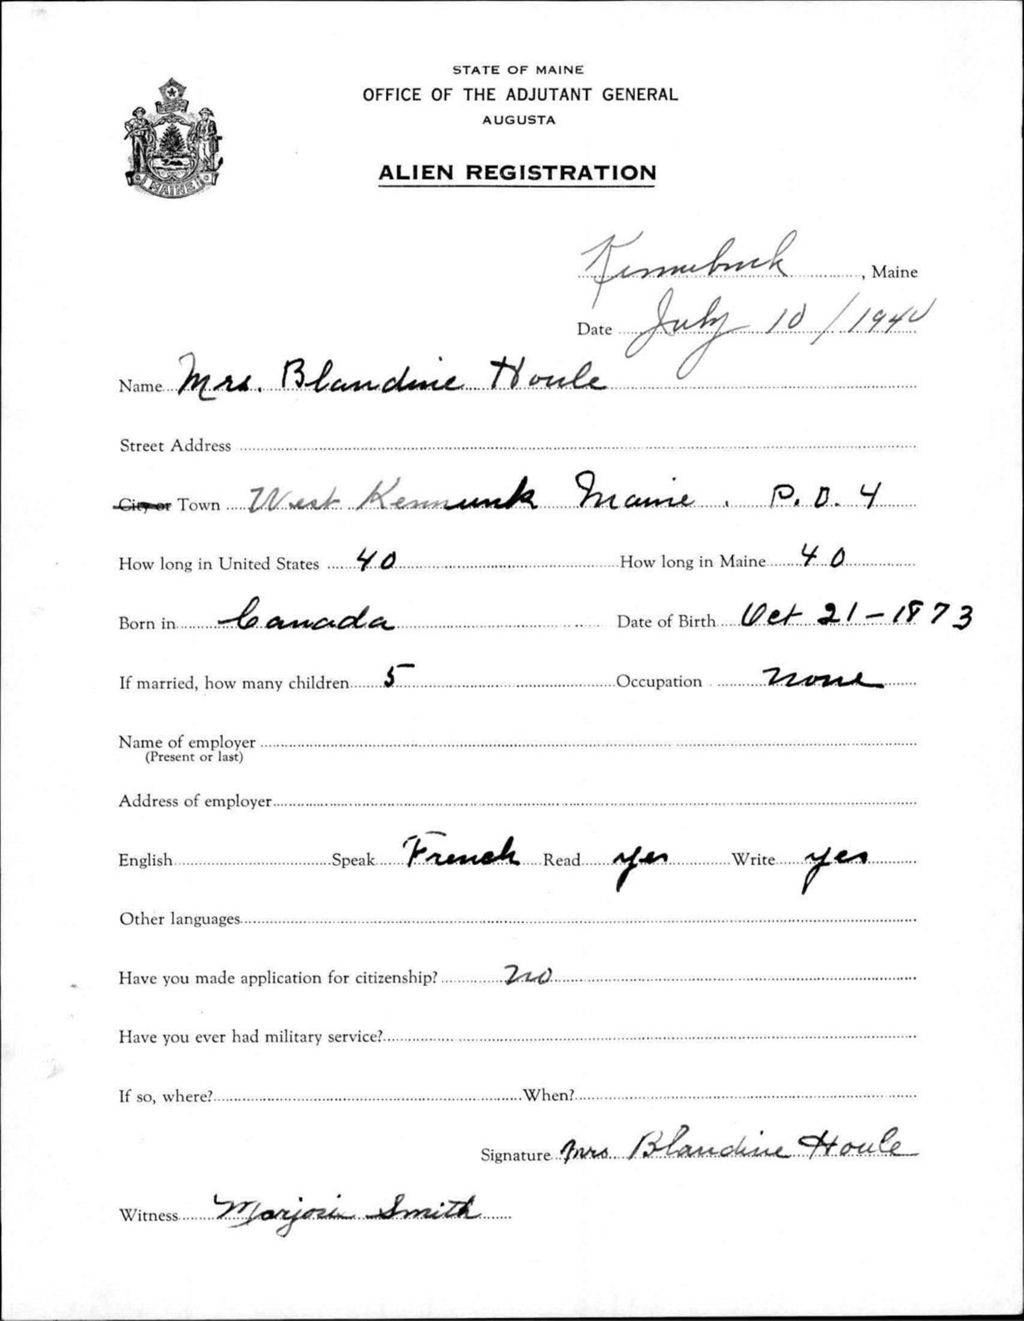 STATE OF MAINE
OFFICE OF THE ADJUTANT GENERAL
AUGUSTA
ALIEN REGISTRATION
MAINE
Kennebunk, Maine
Date July 10/1940
Name Mrs. Blandine Houle
Street Address
City or Town West Kennunk Maine. P.O. 4
How long in United States 40 How long in Maine 40
Born in Canada Date of Birth Oct 21-1873
If married, how many children 5 Occupation none
Name of employer
(Present or last)
Address of employer
English Speak French Read yes Write yes
Other languages
Have you made application for citizenship? no
Have you ever had military service?
If so, where? When?
Signature Mrs Blandine Houle
Witness Marjorie Smith